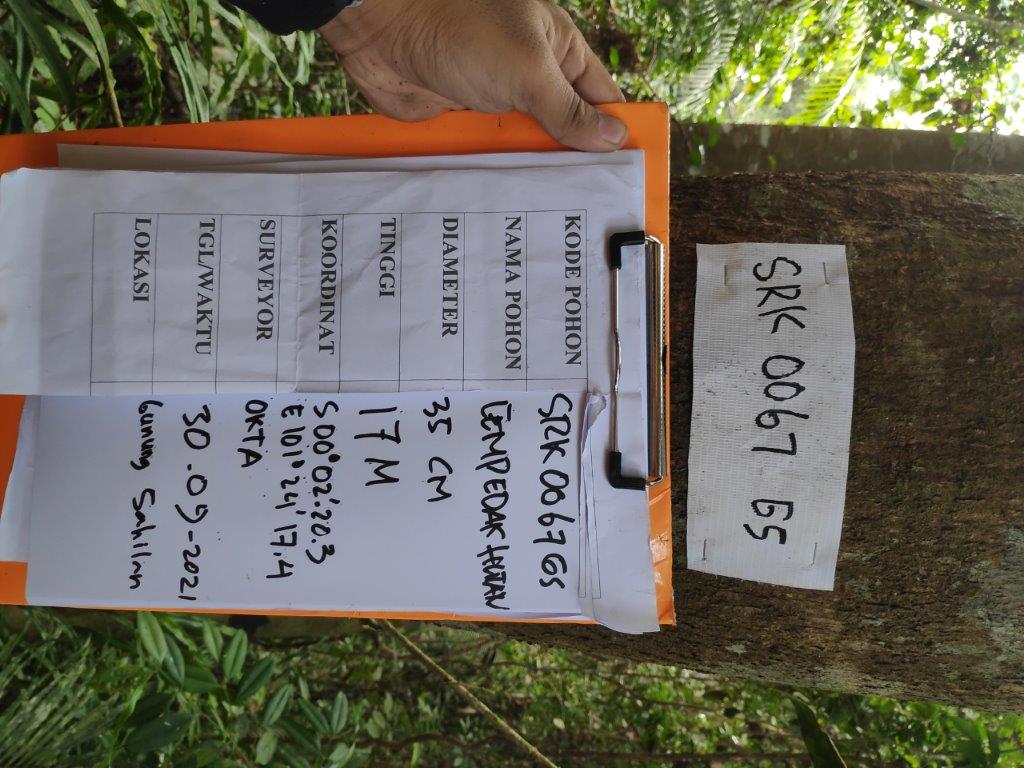 SRK 0067 GS
KODE POHON SRK 0067 GS
NAMA POHON CEMPEDAK HUTAN
DIAMETER 35 CM
TINGGI 17 M
KOORDINAT S 00° 02' 20.3
E 101° 24' 17.4
SURVEYOR OKTA
TGL/WAKTU 30.09-2021
LOKASI Gunung Sahilan